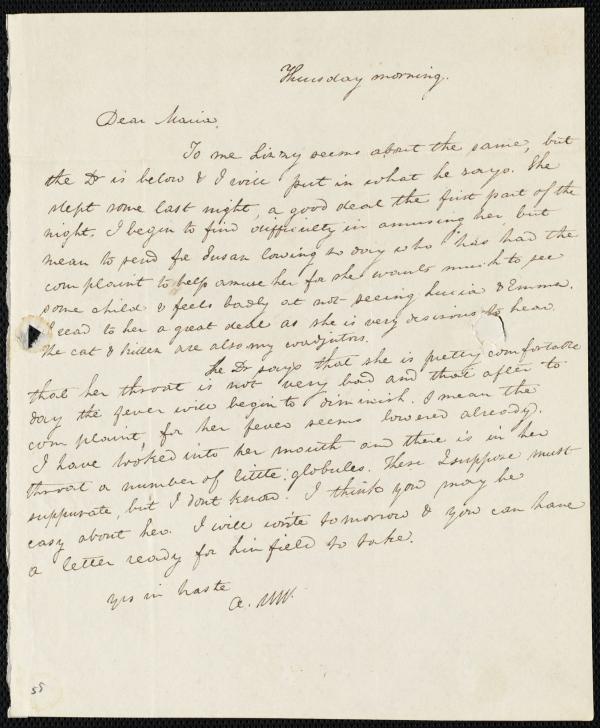 Thursday morning.
Dear Maria,
To me Lizzy seems about the same, but
the Dr is below & I will put in what he says. She
slept some last night, a good deal the first part of the
night. I begin to find difficulty in amusing her, but
mean to send for Susan Loring to day who has had the
complaint to help amuse her for she wants much to see
some child & feels badly at not seeing Lucia & Emma.
I read to her a great deal as she is very desirous to hear
The cat & kitten are also my coadjutors.
The Dr says that she is pretty comfortable
that her throat is not very bad and that after to
day the fever will begin to diminish. I mean the
complaint, for her fever seems lowered already.
I have looked into her mouth and there is in her
throat a number of little globules. These I suppose must
suppurate, but I dont know. I think you may be
easy about her. I will write tomorrow & you can have
a letter ready for him field to take.
yrs in haste
A.
55